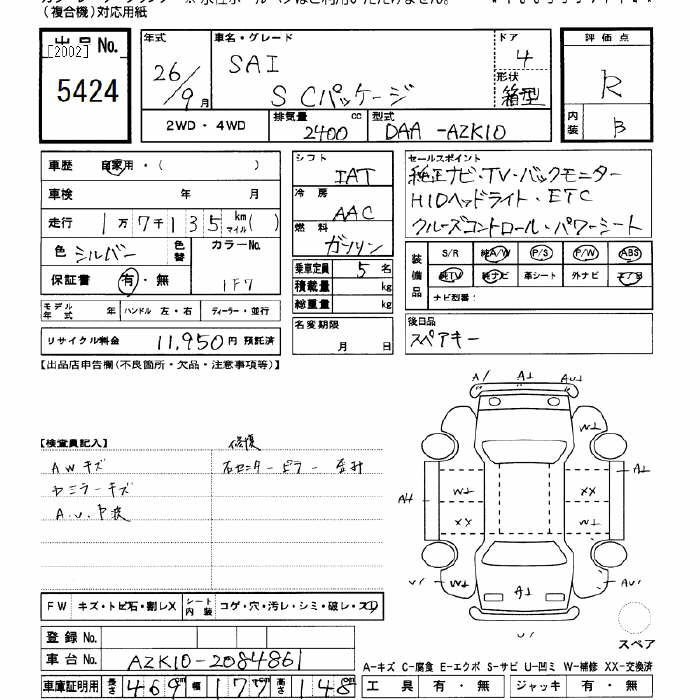 (複合機)対応用紙
出品No.
[2002]
5424
年式
26/9月
車名・グレード
SAI
S Cパッケージ
ドア
4
形状
箱型
評価点
R
内装
B
2WD・4WD
排気量 cc
2400
型式
DAA-AZK10
車歴 自家用・( )
車検 年 月
走行 1万7千135 km マイル( )
色 シルバー
色替
カラーNo.
1F7
保証書 有・無
モデル年式 年 ハンドル 左・右 ディーラー・並行
リサイクル料金 11,950円 預託済
シフト
IAT
冷房
AAC
燃料
ガソリン
乗車定員 5 名
積載量 kg
総重量 kg
名変期限
月 日
セールスポイント
純正ナビ・TV・バックモニター
HIDヘッドライト・ETC
クルーズコントロール・パワーシート
装備品
S/R 純A/W P/S P/W ABS
純TV 純ナビ 革シート 外ナビ エアB
ナビ型番:
後日品
スペアキー
【出品店申告欄(不良箇所・欠品・注意事項等)】
【検査員記入】
AWキズ
修復
右センターピラー
A/ A1 AU1
W1
A1
A4 W1 XX A1
XX W1
U1 W1 A1 AU1
スペア
FW キズ・トビ石・割レX シート内装 コゲ・穴・汚レ・シミ・破レ・スレ
登録No.
車台No. AZK10-2084861
車庫証明用 長さ 469 cm 幅 177 cm 高さ 148 cm
A-キズ C-腐食 E-エクボ S-サビ U-凹ミ W-補修 XX-交換済
工具 有・無 ジャッキ 有・無